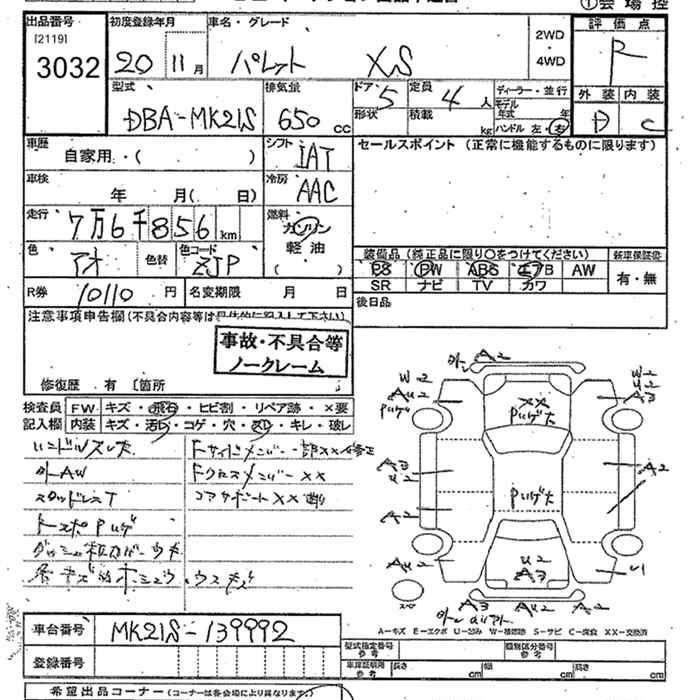 ①会場控
出品番号
[2119]
3032
初度登録年月
20 11月
車名・グレード
パレット XS
2WD
・
4WD
評価点
R
外装 内装
D C
型式
DBA-MK21S
排気量
650 cc
ドア・ 5
形状
定員 4 人
積載 kg
ディーラー・並行
モデル
年式 年
ハンドル 左・右
車歴
自家用・( )
シフト
IAT
セールスポイント (正常に機能するものに限ります)
車検
年 月( 日)
冷房
AAC
走行
7万6千856 km
燃料
ガソリン
軽油
( )
色
アオ
色替
色コード
ZJP
装備品 (純正品に限り○をつけてください)
新車保証書
PS PW ABS エアB AW
有・無
SR ナビ TV カワ
R券 10110 円
名変期限 月 日
後日品
注意事項申告欄(不具合内容等は具体的に記入して下さい)
事故・不具合等
ノークレーム
修復歴 有 〔箇所
検査員
記入欄
FW キズ・飛石・ヒビ割・リペア跡・×要
内装 キズ・汚れ・コゲ・穴・スレ・キレ・破レ
ハンドルスレ
外AW
スタッドレスT
FスポPUゲ
Fサイドメンバー一部××修正
Fクロスメンバー××
コアサポート××
W2
AU2
PUゲ
A2
××
PUゲ大
W2
U2
A3
A3
U2
PUゲ大
A2
A2
AU2
U2
A3
U1
A3 AU2 A2
A-キズ E-エクボ U-凹み W-補修跡 S-サビ C-腐食 XX-交換済
車台番号
MK21S-139992
登録番号
型式指定番号
参考
類別区分番号
参考
車庫証明用
参考
長さ cm 幅 cm 高さ cm
希望出品コーナー (コーナーは各会場により異なります)